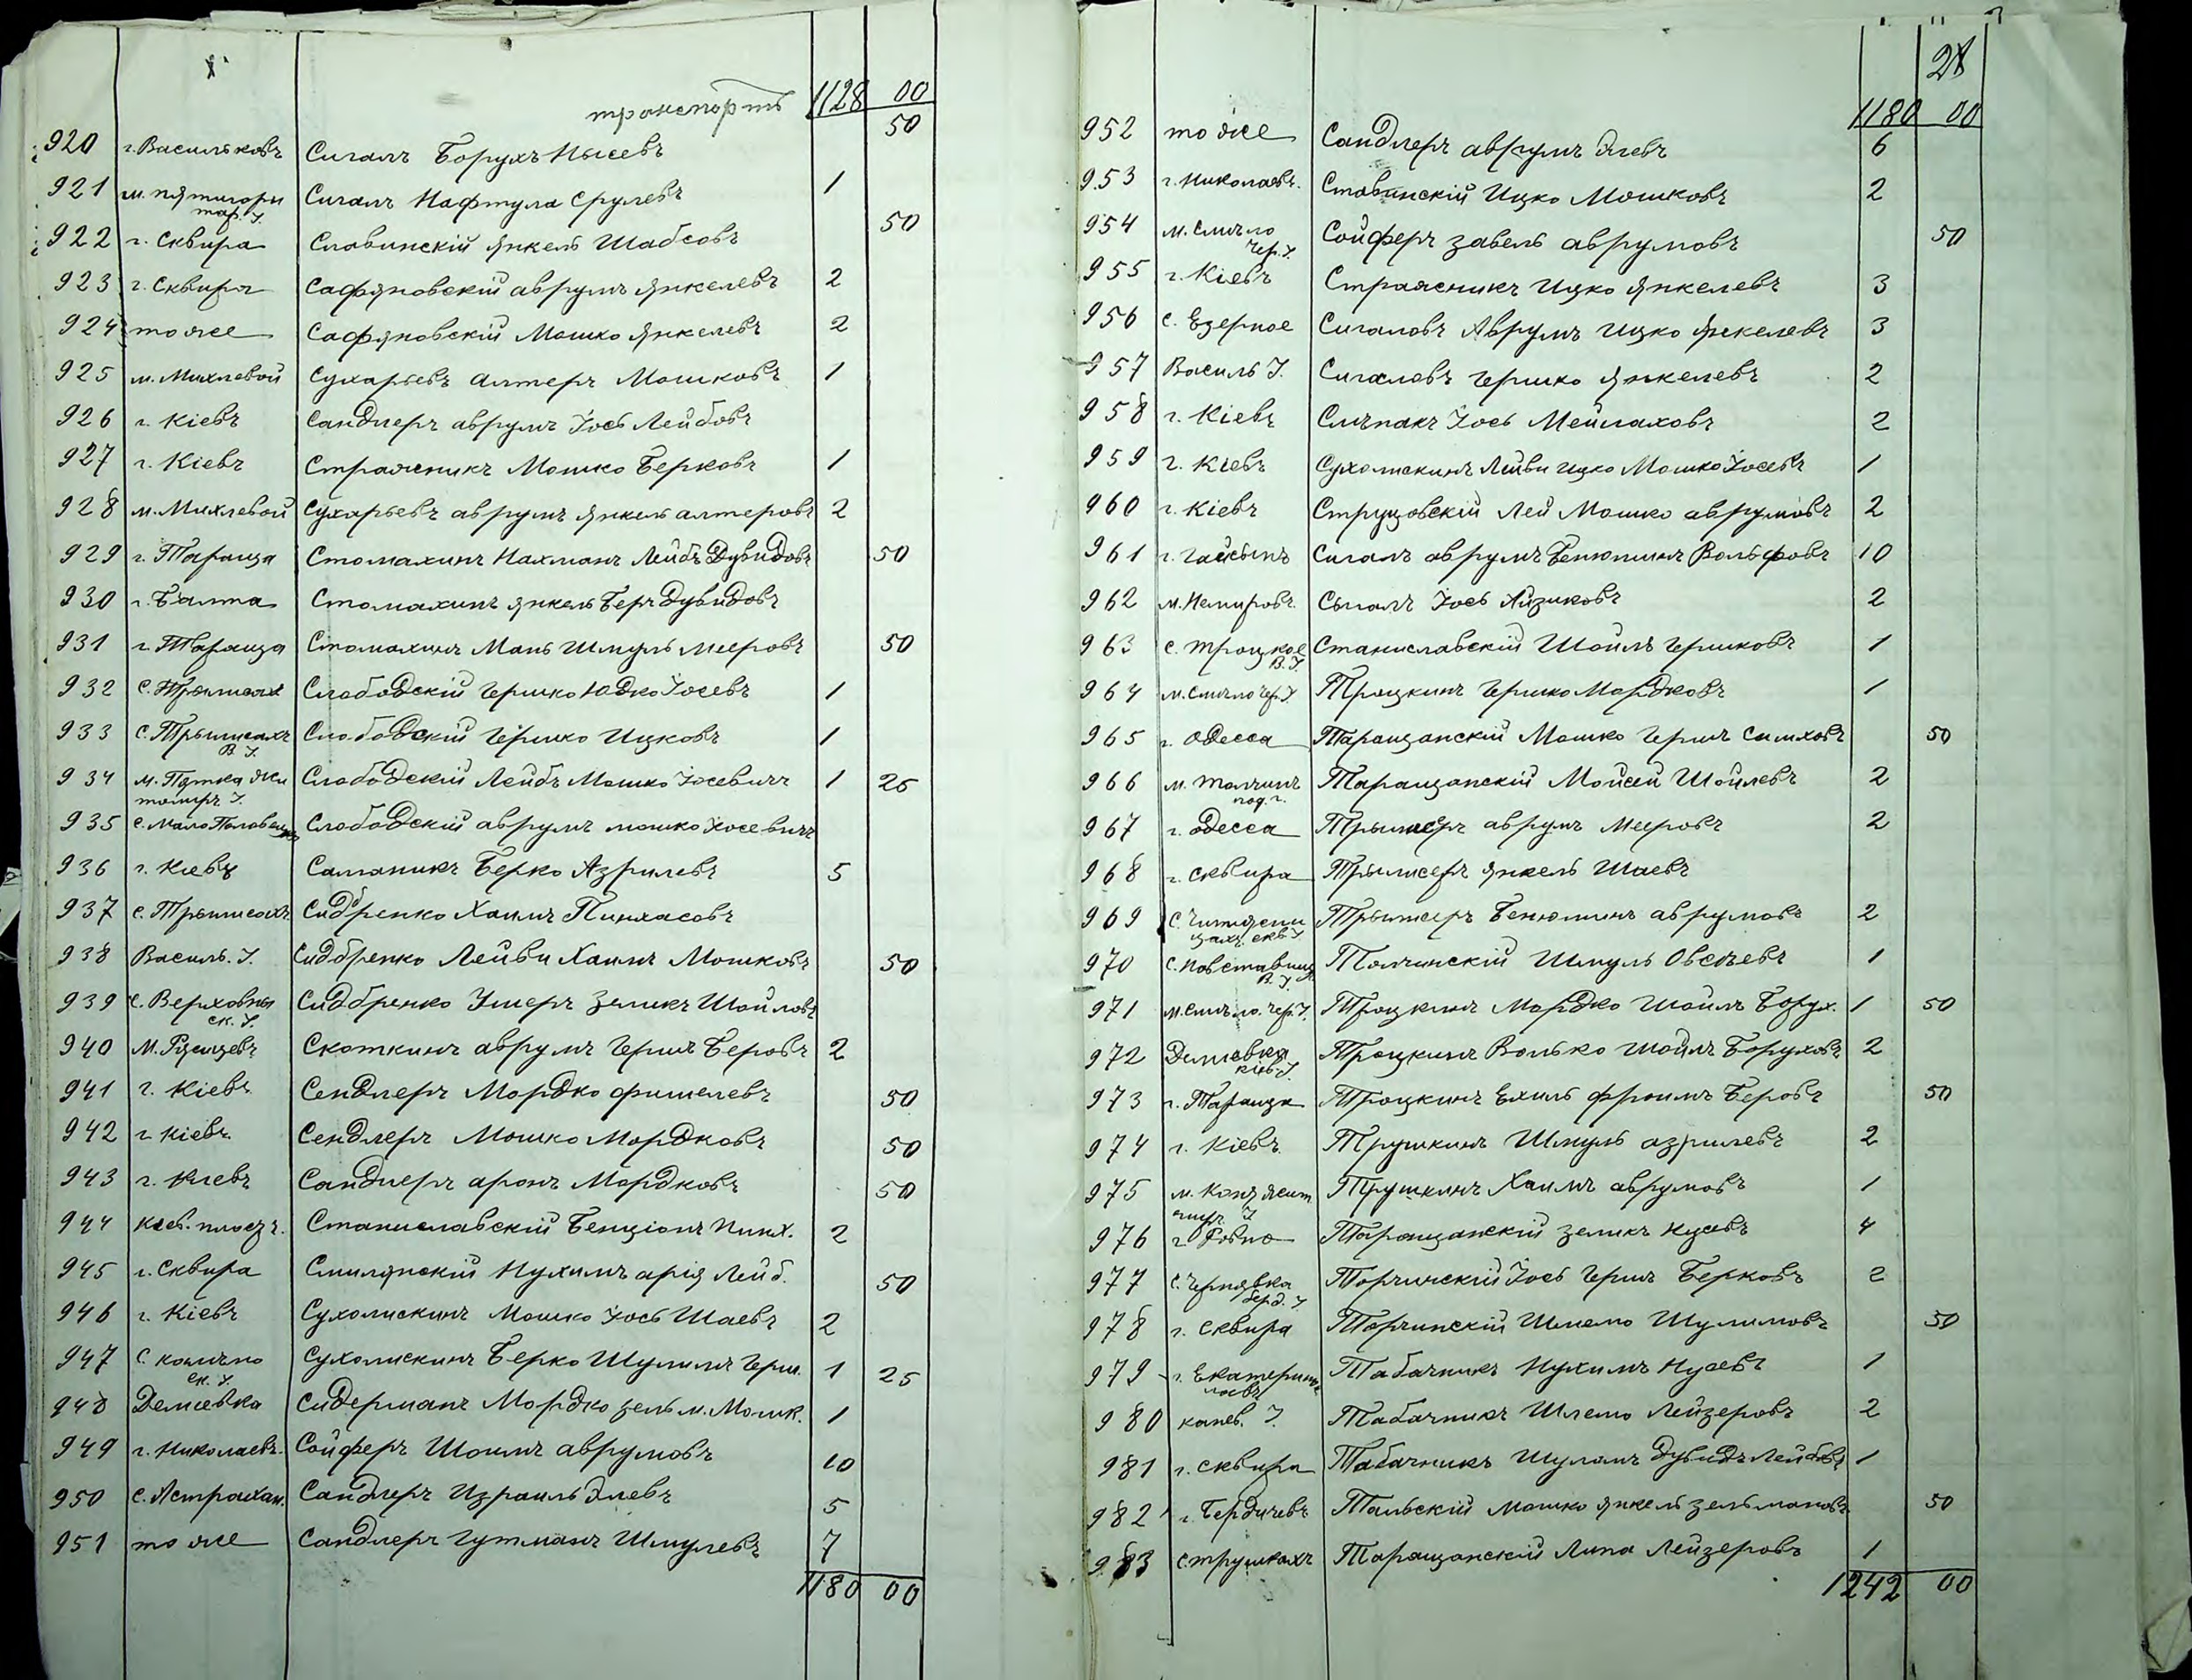 транспортъ 1128 00
920 г. Васильковъ Сигалъ Борухъ Нысевъ 50
921 м. пятигоры Сигалъ Нафтула Срулевъ 1
тар. У.
922 г. Сквира Славинскій Янкель Шабсовъ 50
923 г. Сквира Сафяновскій аврумъ Янкелевъ 2
924 тоже Сафяновскій Мошко Янкелевъ 2
925 м. Михлевой Сухарьевъ алтеръ Мошковъ 1
926 г. Кіевъ Сандлеръ аврумъ Іось Лейбовъ
927 г. Кіевъ Стражникъ Мошко Берковъ 1
928 м. Михлевой Сухарьевъ аврумъ Янкель алтеровъ 2
929 г. Тараща Стомахинъ Нахманъ Лейбъ Дувидовъ 50
930 г. Балта Стомахинъ Янкель Беръ Дувидовъ
931 г. Тараща Стомахинъ Мань Шмуль Мееровъ 50
932 с. Трылисахъ Слободскій Гершко Юдко Іосевъ 1
933 с. Трылисахъ Слободскій Гершко Ицковъ 1
В. У.
934 м. Пятка Жи Слободскій Лейбъ Мошко Іосевичъ 1 25
томиръ У.
935 с. Мало Половецк Слободскій аврумъ мошко Іосевичъ
936 г. Кіевъ Саланикъ Берко Азрилевъ 5
937 с. Трылисахъ Сидбренко Хаимъ Пинхасовъ
938 Василь. У. Сидбренко Лейви Хаимъ Мошковъ 50
939 с. Верховны Сидбренко Ушеръ Зеликъ Шойловъ
ск. У.
940 М. Ржищевъ Скоткинъ аврумъ Гершъ Беровъ 2
941 г. Кіевъ Сендлеръ Мордко фишелевъ 50
942 г. Кіевъ Сендлеръ Мошко Мордковъ 50
943 г. Кіевъ Сандлеръ аронъ Мордковъ 50
944 Кіев. Станиславскій Бенціонъ Пинх. 2
945 г. Сквира Смилянскій Нухимъ арія Лейб. 50
946 г. Кіевъ Сухолискинъ Мошко Іось Шаевъ 2
947 с. Сухолискинъ Берко Шулимъ Герш. 1 25
ск. У.
948 Демѣевка Сидерманъ Мордко Зельм. Мошк. 1
949 г. Николаевъ Сойферъ Шоилъ аврумовъ 10
950 с. Астрахан. Сандлеръ Израиль Элевъ 5
951 тоже Сандлеръ Гутманъ Шмулевъ 7
1180 00
28
1180 00
952 тоже Сандлеръ аврумъ Элевъ 6
953 г. Николаевъ. Ставинскій Ицко Мошковъ 2
954 м. Смѣло Сойферъ Завель аврумовъ 50
Чер. У.
955 г. Кіевъ Стражникъ Ицко Янкелевъ 3
956 с. Езерное Сигаловъ Аврумъ Ицко Янкелевъ 3
957 Василь У. Сигалевъ Гершко Янкелевъ 2
958 г. Кіевъ Слѣпакъ Іось Мейлаховъ 2
959 г. Кіевъ Сухолискинъ Лейви Ицко Мошко Іосевъ 1
960 г. Кіевъ Струцовскій Лей Мошко аврумовъ 2
961 г. Гайсынъ Сигалъ аврумъ Бенюминъ Вольфовъ 10
962 м. Немировъ. Сыгалъ Іось Айзиковъ 2
963 с. Троцкое Станиславскій Шоилъ Гершковъ 1
В. У.
964 м. Смѣло Чер. У. Троцкинъ Гершко Мордковъ 1
965 г. Одесса Таращанскій Мошко Гершъ Симховъ 50
966 м. Толчинъ Таращанскій Мойсей Шойлевъ 2
под. г.
967 г. Одесса Трылисеръ аврумъ Мееровъ 2
968 г. Сквира Трылисеръ Янкель Шаевъ
969 с. Трылисеръ Бенюминъ аврумовъ 2
скв. У.
970 с. Повставищ Толчинскій Шмуль Овсѣевъ 1
В. У.
971 м. Смѣло. Чер. У. Троцкинъ Мордко Шоилъ Борух. 1 50
972 Демѣевка Троцкинъ Волько Шоилъ Боруховъ 2
кіев. У.
973 г. Тараща Троцкинъ Ехиль фроимъ Беровъ 50
974 г. Кіевъ. Трушкинъ Шмуль азрилевъ 2
975 м. Трушкинъ Хаимъ аврумовъ 1
976 г. Ровно Таращанскій Зеликъ Нусевъ 4
977 с. Чернявка Торчинскій Іось Гершъ Берковъ 2
берд. У.
978 г. Сквира Торчинскій Шлемо Шулимовъ 50
979 г. Екатерино Табачникъ Нухимъ Нусевъ 1
славъ
980 канев. У. Табачникъ Шлемо Лейзеровъ 2
981 г. Сквира Табачникъ Шуламъ Дувидъ Лейбовъ 1
982 г. Бердичевъ Тальскій мошко Янкель Зельмановъ 50
983 с. трушкахъ Таращанскій Липа Лейзеровъ 1
1242 00